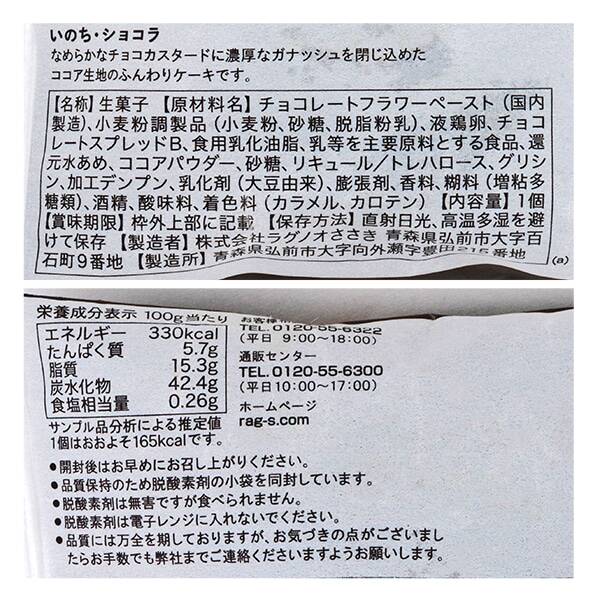 いのち・ショコラ
なめらかなチョコカスタードに濃厚なガナッシュを閉じ込めた
ココア生地のふんわりケーキです。
【名称】生菓子 【原材料名】チョコレートフラワーペースト（国内
製造）、小麦粉調製品（小麦粉、砂糖、脱脂粉乳）、液鶏卵、チョコ
レートスプレッドB、食用乳化油脂、乳等を主要原料とする食品、還
元水あめ、ココアパウダー、砂糖、リキュール／トレハロース、グリシ
ン、加工デンプン、乳化剤（大豆由来）、膨張剤、香料、糊料（増粘多
糖類）、酒精、酸味料、着色料（カラメル、カロテン）【内容量】1個
【賞味期限】枠外上部に記載 【保存方法】直射日光、高温多湿を避
けて保存 【製造者】株式会社ラグノオささき 青森県弘前市大字百
石町9番地 【製造所】青森県弘前市大字向外瀬字豊田215番地
(a)
栄養成分表示 100g当たり
エネルギー 330kcal
たんぱく質 5.7g
脂質 15.3g
炭水化物 42.4g
食塩相当量 0.26g
サンプル品分析による推定値
1個はおおよそ165kcalです。
TEL.0120-55-6322
（平日 9:00〜18:00）
通販センター
TEL.0120-55-6300
（平日10:00〜17:00）
ホームページ
rag-s.com
●開封後はお早めにお召し上がりください。
●品質保持のため脱酸素剤の小袋を同封しています。
●脱酸素剤は無害ですが食べられません。
●脱酸素剤は電子レンジに入れないでください。
●品質には万全を期しておりますが、お気づきの点がございまし
たらお手数でも弊社までご連絡くださいますようお願いします。